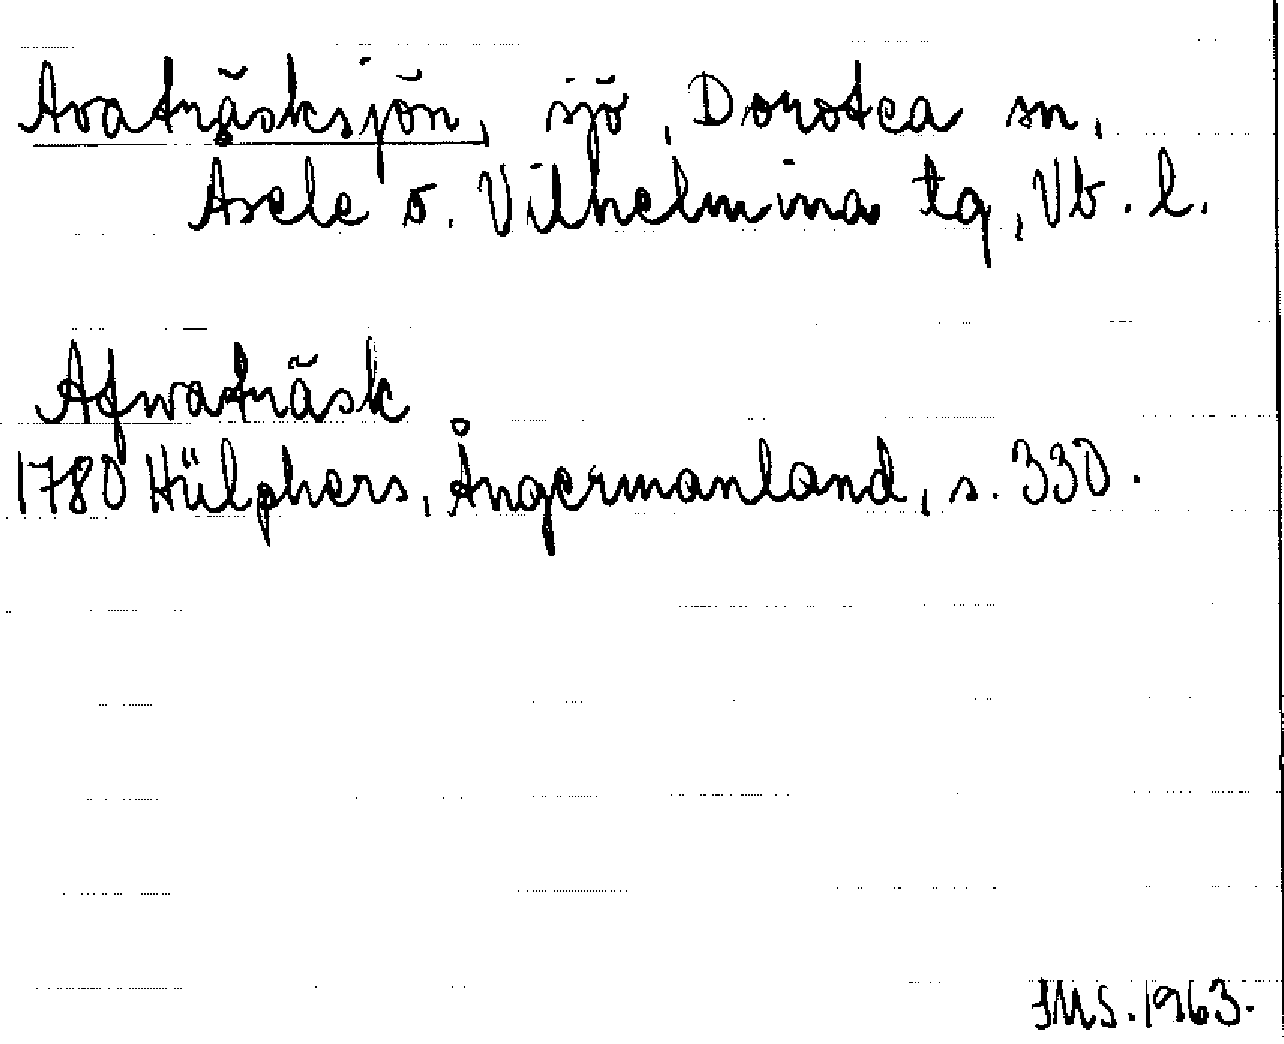 Avaträsksjön, sjö, Dorotea sn,
Åsele o. Vilhelmina tg, Vb. l.
Afwaträsk
1780 Hülphers, Ångermanland, s. 330.
JMS. 1963.